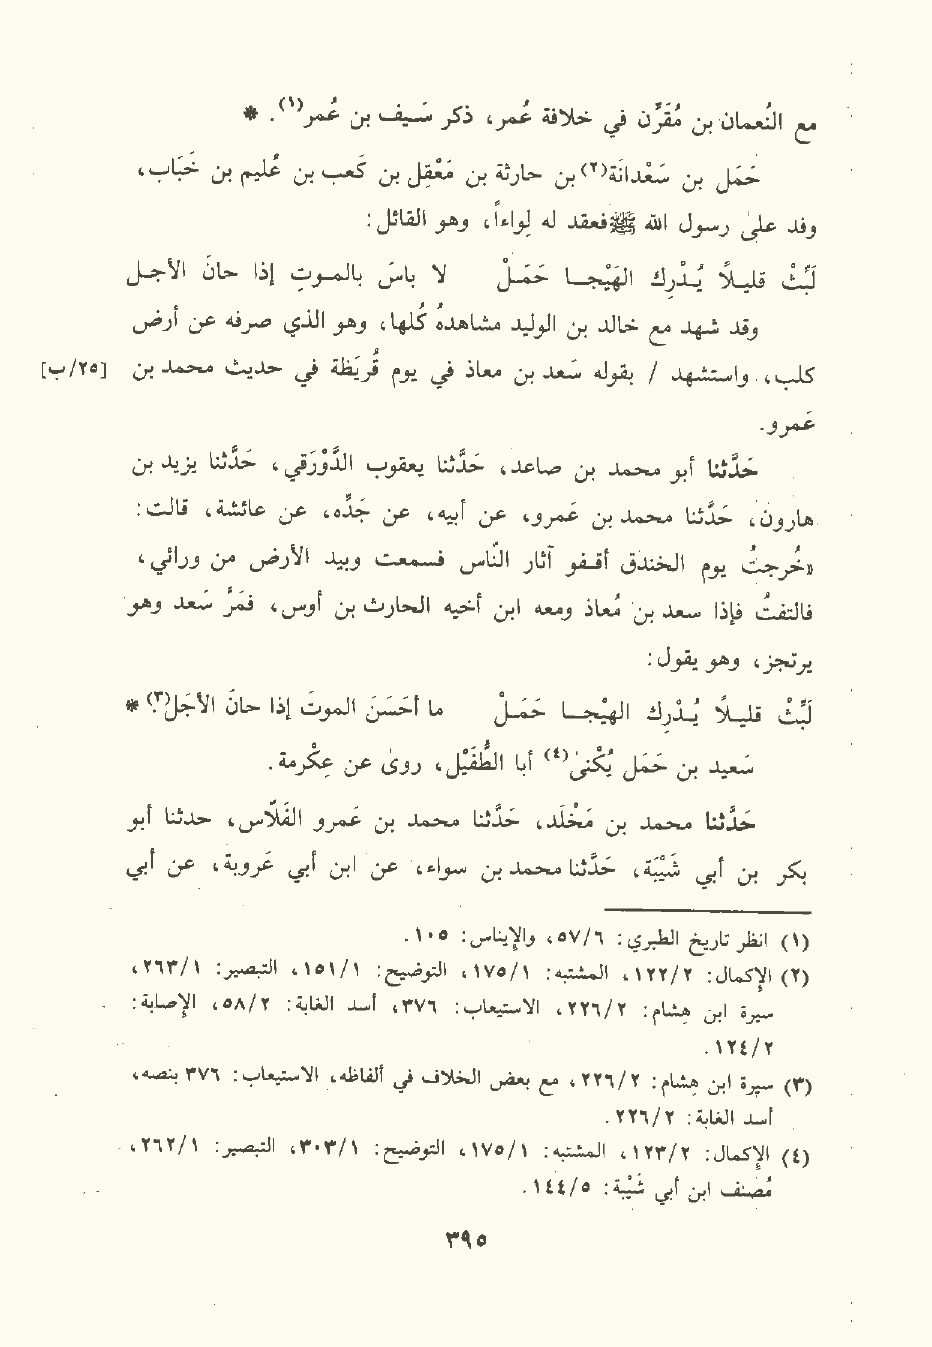 مع النُعمان بن مُقَرِّن في خلافة عُمر، ذكر سَيف بن عُمر(١). *
حَمَل بن سَعْدانَة(٢) بن حارثة بن مَعْقِل بن كَعب بن عُليم بن خَبَاب،
وفد على رسول الله ﷺ فعقد له لِواءاً، وهو القائل:
لَبِّثْ قليلاً يُدْرِك الهَيْجا حَمَلْ لا بأسَ بالموتِ إذا حانَ الأجل
وقد شهد مع خالد بن الوليد مشاهدهُ كُلها، وهو الذي صرفه عن أرض
كلب، واستشهد / بقوله سَعد بن معاذ في يوم قُريَظة في حديث محمد بن [٢٥/ب]
عَمرو.
حَدَّثنا أبو محمد بن صاعد، حَدَّثنا يعقوب الدَّوْرَقي، حَدَّثنا يزيد بن
هارون، حَدَّثنا محمد بن عَمرو، عن أبيه، عن جَدِّه، عن عائشة، قالت:
«خُرجتُ يوم الخندق أقفو آثار النَّاس فسمعت وبيد الأرض من ورائي،
فالتفتُ فإذا سعد بن مُعاذ ومعه ابن أخيه الحارث بن أوس، فمَرَّ سَعد وهو
يرتجز، وهو يقول:
لَبِّثْ قليلاً يُدْرِك الهيْجا حَمَلْ ما أحَسَنَ الموتَ إذا حانَ الأجَل(٣)؟ *
سَعيد بن حَمَل يُكْنىٰ(٤) أبا الطُّفَيْل، روىٰ عن عِكْرمة.
حَدَّثنا محمد بن مَخْلَد، حَدَّثنا محمد بن عَمرو الفَلَّاس، حدثنا أبو
بكر بن أبي شَيْبَة، حَدَّثنا محمد بن سواء، عن ابن أبي عَروبة، عن أبي
(١) انظر تاريخ الطبري: ٥٧/٦، والإيناس: ١٠٥.
(٢) الإكمال: ١٢٢/٢، المشتبه: ١٧٥/١، التوضيح: ١٥١/١، التبصير: ٢٦٣/١،
سيرة ابن هِشام: ٢٢٦/٢، الاستيعاب: ٣٧٦، أسد الغابة: ٥٨/٢، الإصابة:
١٢٤/٢.
(٣) سيرة ابن هِشام: ٢٢٦/٢، مع بعض الخلاف في ألفاظه، الاستيعاب: ٣٧٦ بنصه،
أسد الغابة: ٢٢٦/٢.
(٤) الإكمال: ١٢٣/٢، المشتبه: ١٧٥/١، التوضيح: ٣٠٣/١، التبصير: ٢٦٢/١،
مُصَنف ابن أبي شَيْبة: ١٤٤/٥.
٣٩٥